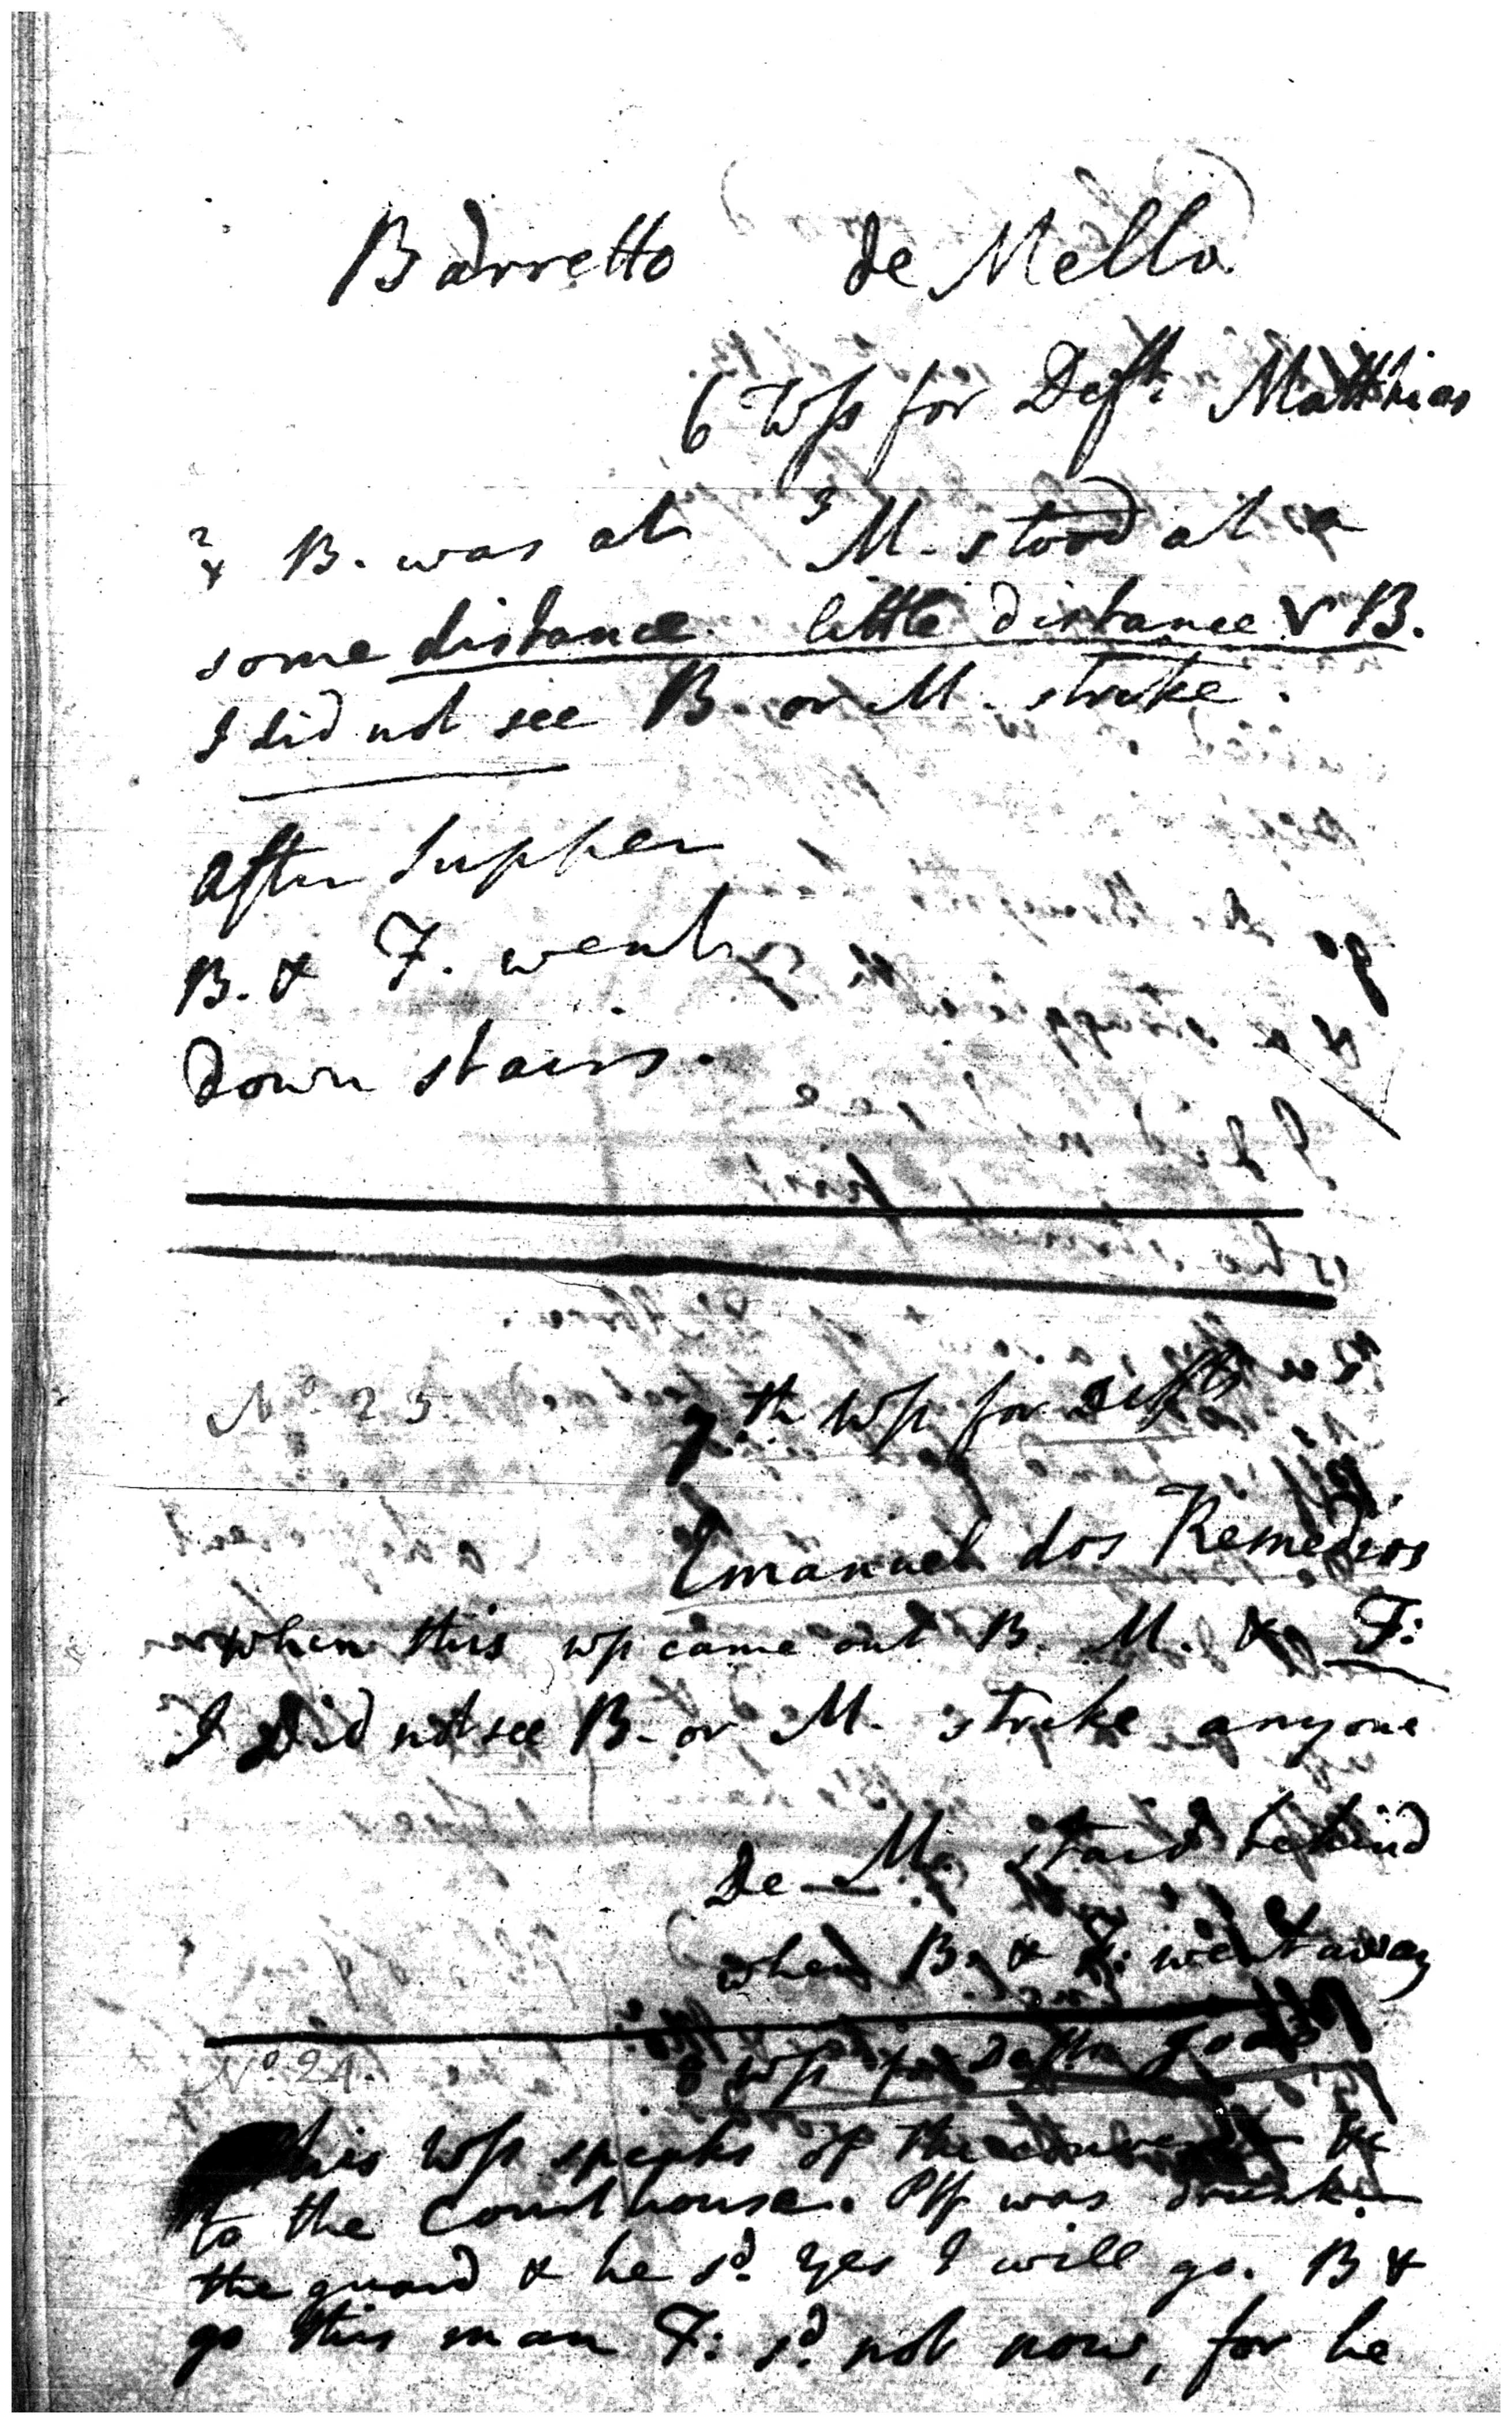 Barretto de Mello
6 Wss for Deft. Matthias
2 & B. was at 3 M. stood at a
some distance little distance & B.
I did not see B. or M. strike.
After Supper
B. & F. went
down stairs.
No. 25
7.th Wss for Defts
Emanuel dos Remedios
when this wss came out B. M. & F:
I Did not see B. or M. strike anyone
De M. staid behind
when B. & F: went away
No. 24.
8 Wss for Defts
this Wss speaks of the &c
to the Court house. Plff was drunk.
the guard & he sd. Yes I will go. B &
go this man F: sd. not now, for he